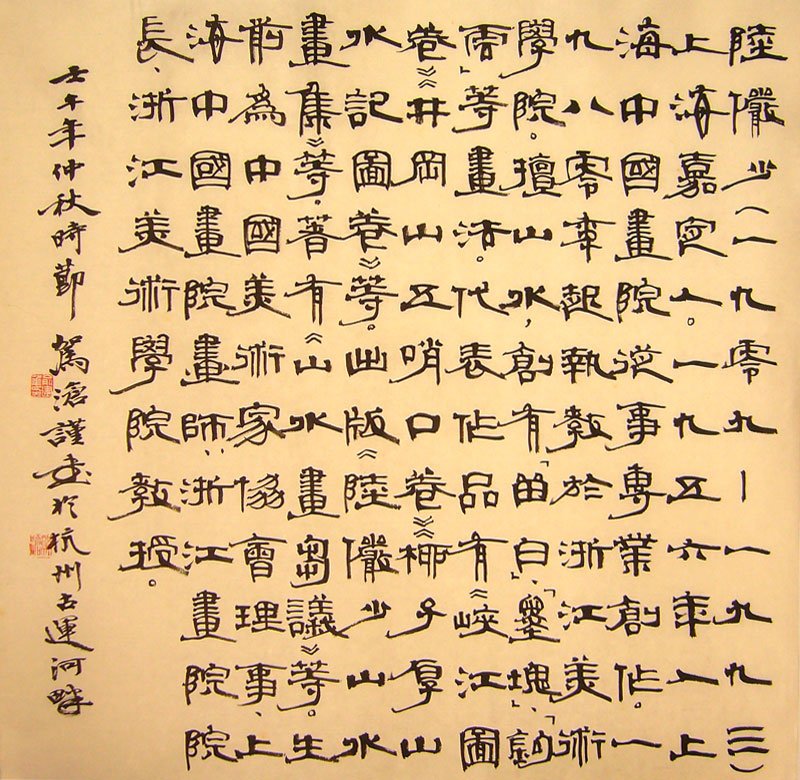 陸儼少(一九零九—一九九三)
上海嘉定人。一九五六年入上
海中國畫院從事專業創作。一
九八零年起執教於浙江美術
學院。擅山水,創有「留白」、「墨塊」、「鈎
雲」等畫法。代表作品有《峽江圖
卷》《井岡山五哨口卷》《柳子厚山
水記圖卷》等。出版《陸儼少山水
畫集》等。著有《山水畫芻議》等。生
前為中國美術家協會理事、上
海中國畫院畫師、浙江畫院院
長、浙江美術學院教授。
壬午年仲秋時節 駕滄謹書於杭州古運河畔